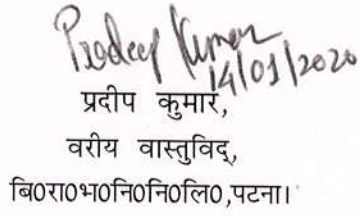 Pradeep Kumar
14/01/2020
प्रदीप कुमार,
वरीय वास्तुविद्,
बि0रा0भ0नि0नि0लि0,पटना।